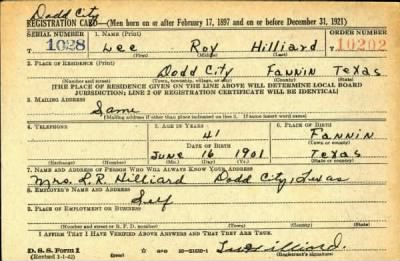 Dodd City
REGISTRATION CARD—(Men born on or after February 17, 1897 and on or before December 31, 1921)
SERIAL NUMBER 1. NAME (Print) ORDER NUMBER
1028 Lee Roy Hilliard 10202
(First) (Middle) (Last)
2. PLACE OF RESIDENCE (Print)
Dodd City Fannin Texas
(Number and street) (Town, township, village, or city) (County) (State)
[THE PLACE OF RESIDENCE GIVEN ON THE LINE ABOVE WILL DETERMINE LOCAL BOARD
JURISDICTION; LINE 2 OF REGISTRATION CERTIFICATE WILL BE IDENTICAL]
3. MAILING ADDRESS
Same
(Mailing address if other than place indicated on line 2. If same insert word same)
4. TELEPHONE 5. AGE IN YEARS 6. PLACE OF BIRTH
41 Fannin
DATE OF BIRTH (Town or county)
June 16 1901 Texas
(Exchange) (Number) (Mo.) (Day) (Yr.) (State or country)
7. NAME AND ADDRESS OF PERSON WHO WILL ALWAYS KNOW YOUR ADDRESS
Mrs. L.R. Hilliard Dodd City, Texas
8. EMPLOYER'S NAME AND ADDRESS
Self
9. PLACE OF EMPLOYMENT OR BUSINESS
(Number and street or R. F. D. number) (Town) (County) (State)
I AFFIRM THAT I HAVE VERIFIED ABOVE ANSWERS AND THAT THEY ARE TRUE.
D. S. S. Form 1 Hilliard
(Revised 1-1-42) (Registrant's signature)